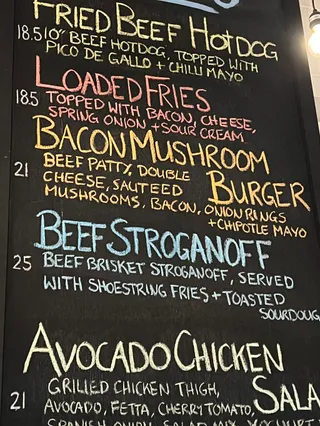 FRIED BEEF HOTDOG
18.5 10" BEEF HOTDOG, TOPPED WITH
PICO DE GALLO + CHILLI MAYO
LOADED FRIES
18.5 TOPPED WITH BACON, CHEESE,
SPRING ONION + SOUR CREAM
BACON MUSHROOM
21 BEEF PATTY, DOUBLE
CHEESE, SAUTEED BURGER
MUSHROOMS, BACON, ONION RINGS
+ CHIPOTLE MAYO
BEEF STROGANOFF
25 BEEF BRISKET STROGANOFF, SERVED
WITH SHOESTRING FRIES + TOASTED
SOURDOUG
AVOCADO CHICKEN
GRILLED CHICKEN THIGH, SALA
21 AVOCADO, FETTA, CHERRY TOMATO,
SPANISH ONION, SALAD MIX, YOGHURT